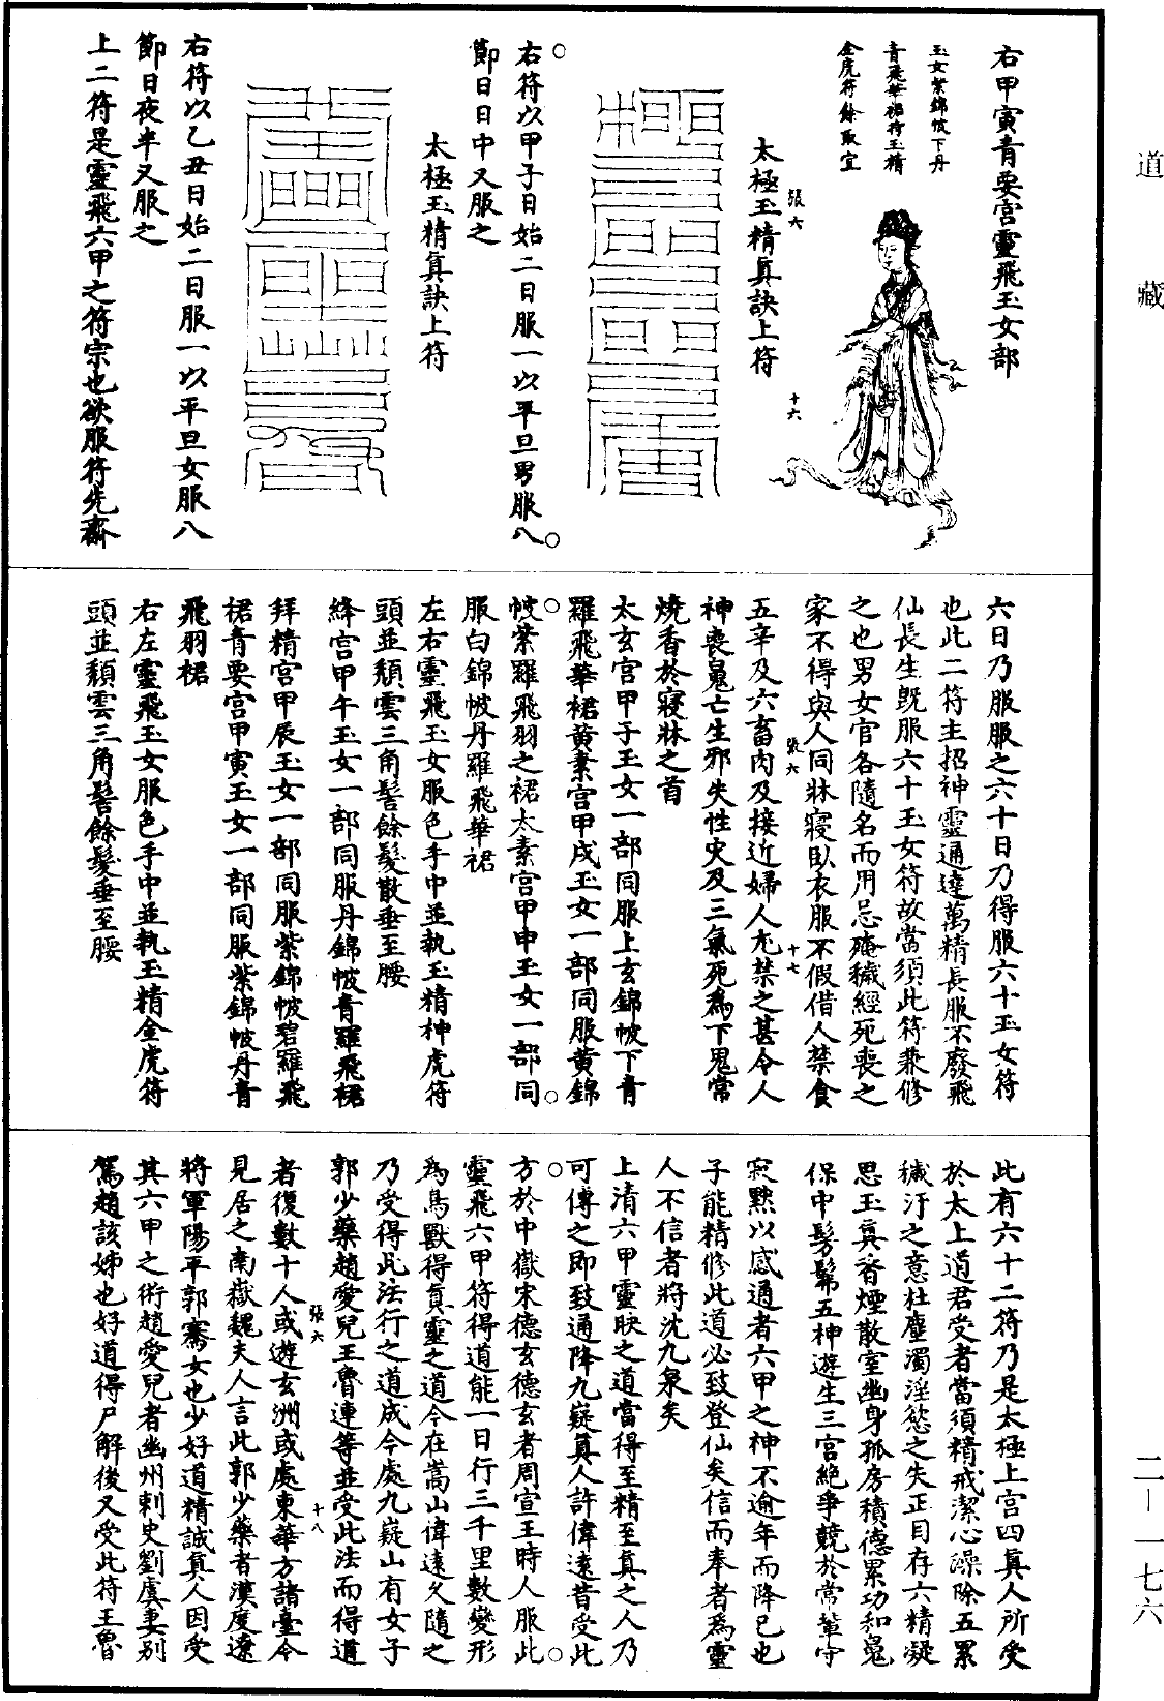 道藏
二－一七六
右甲寅青要宮靈飛玉女部
玉女紫錦帔下丹
青飛華裙待玉精
金虎符餘取宜
太極玉精眞訣上符
張六
十六
右符以甲子日始二日服一以平旦男服八
節日日中又服之
太極玉精眞訣上符
右符以乙丑日始二日服一以平旦女服八
節日夜半又服之
上二符是靈飛六甲之符宗也欲服符先齋
六日乃服服之六十日乃得服六十玉女符
也此二符主招神靈通達萬精長服不廢飛
仙長生旣服六十玉女符故當須此符兼修
之也男女官各隨名而用忌淹穢經死喪之
家不得與人同牀寢臥衣服不假借人禁食
張六
十七
五辛及六畜肉及接近婦人尤禁之甚令人
神喪鬼亡生邪失性灾及三氣死爲下鬼常
燒香於寢牀之首
太玄宮甲子玉女一部同服上玄錦帔下青
羅飛華裙黃素宮甲戌玉女一部同服黃錦
帔紫羅飛羽之裙太素宮甲申玉女一部同
服白錦帔丹羅飛華裙
左右靈飛玉女服色手中並執玉精神虎符
頭並頹雲三角髻餘髮散垂至腰
絳宮甲午玉女一部同服丹錦帔青羅飛裙
拜精宮甲辰玉女一部同服紫錦帔碧羅飛
裙青要宮甲寅玉女一部同服紫錦帔丹青
飛羽裙
右左靈飛玉女服色手中並執玉精金虎符
頭並頹雲三角髻餘髮垂至腰
此有六十二符乃是太極上宮四眞人所受
於太上道君受者當須精戒潔心澡除五累
穢汙之意杜塵濁淫慾之失正目存六精凝
思玉眞香煙散室幽身孤房積德累功和鬼
保中髣髴五神遊生三宮絕爭競於常輩守
寂默以感通者六甲之神不逾年而降已也
子能精修此道必致登仙矣信而奉者爲靈
人不信者將沈九泉矣
上清六甲靈䀹之道當得至精至眞之人乃
可傳之即致通降九嶷眞人許偉遠昔受此
方於中嶽宋德玄德玄者周宣王時人服此
靈飛六甲符得道能一日行三千里數變形
爲鳥獸得眞靈之道今在嵩山偉遠久隨之
乃受得此法行之道成今處九嶷山有女子
郭少藥趙愛兒王魯連等並受此法而得道
張六
十八
者復數十人或遊玄洲或處東華方諸臺今
見居之南嶽魏夫人言此郭少藥者漢度遼
將軍陽平郭騫女也少好道精誠眞人因受
其六甲之術趙愛兒者幽州剌史劉虞妻別
駕趙該姊也好道得尸解後又受此符王魯